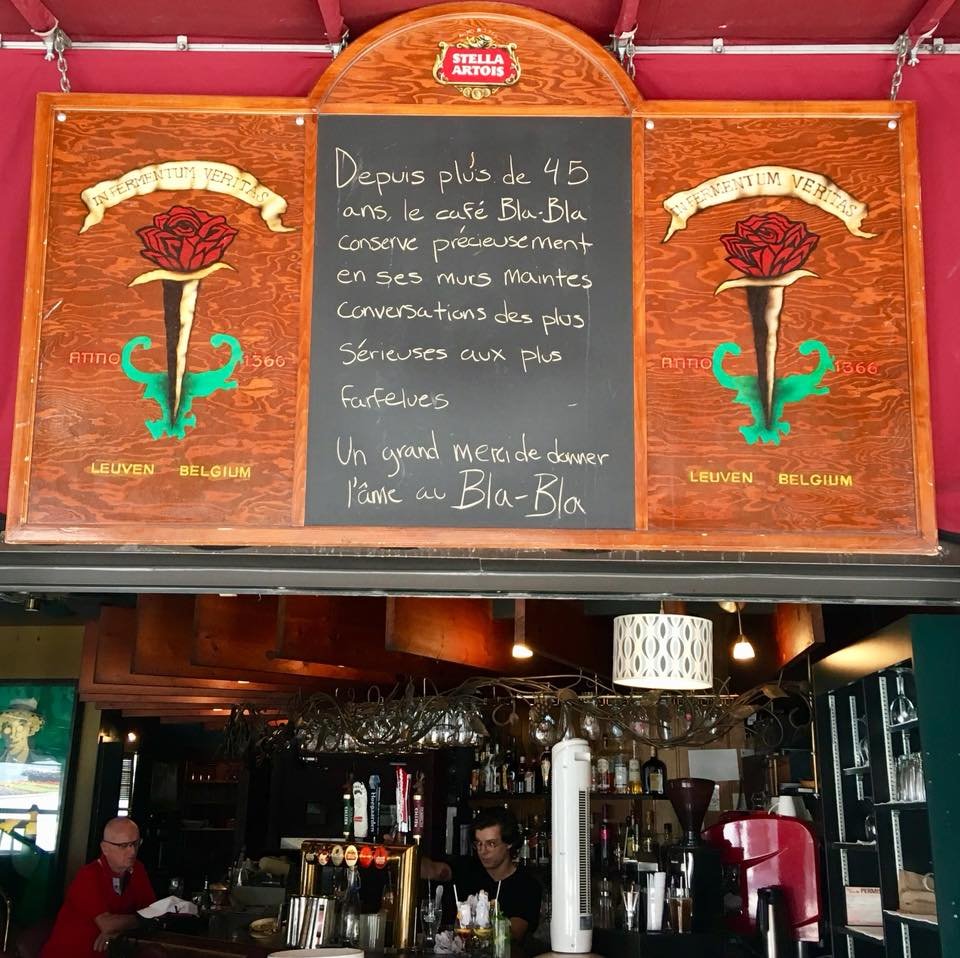 STELLA
ARTOIS
IN FERMENTUM VERITAS
ANNO 1366
LEUVEN BELGIUM
Depuis plus de 45
ans, le café Bla-Bla
conserve précieusement
en ses murs maintes
conversations des plus
sérieuses aux plus
farfelues
Un grand merci de donner
l'âme au Bla-Bla
IN FERMENTUM VERITAS
ANNO 1366
LEUVEN BELGIUM
Hoegaarden